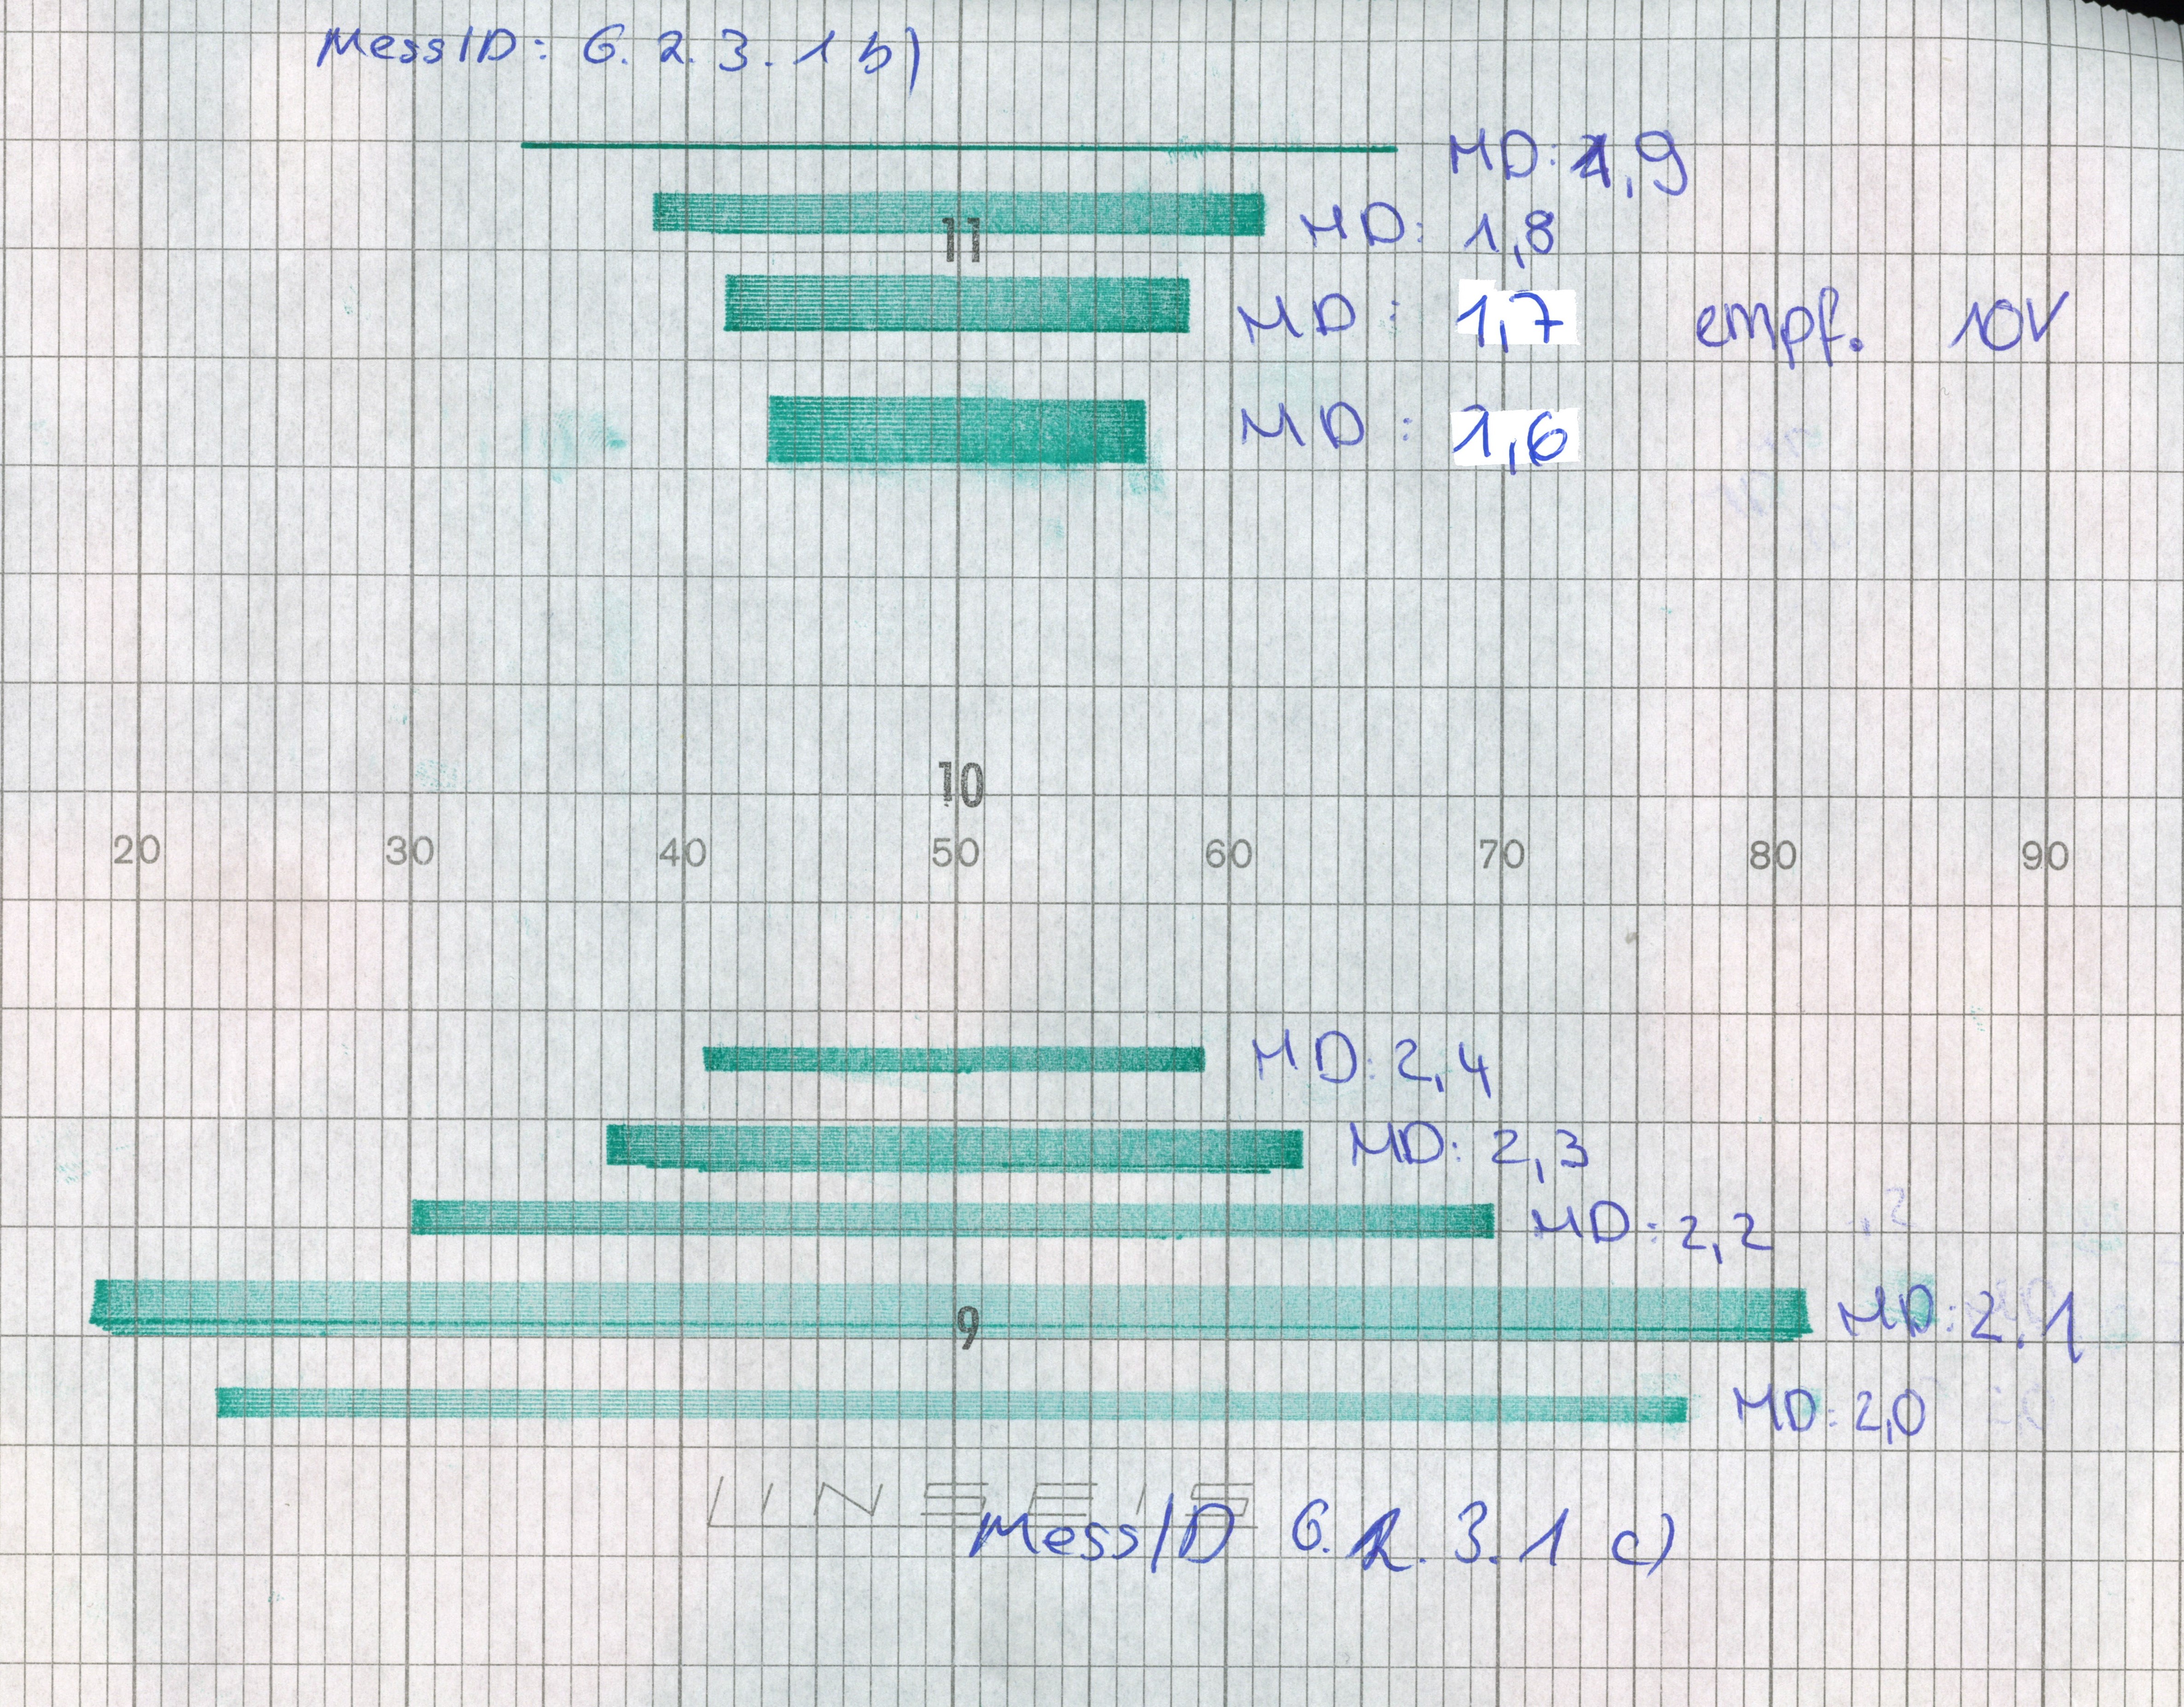 MessID: 6.2.3.1 b)
MD: 1,9
11
MD: 1,8
MD: 1,7 empf. 10V
MD: 1,6
10
20 30 40 50 60 70 80 90
MD: 2,4
MD: 2,3
MD: 2,2
9
MD: 2.1
MD: 2,0
LINSEIS
MessID 6.2.3.1 c)